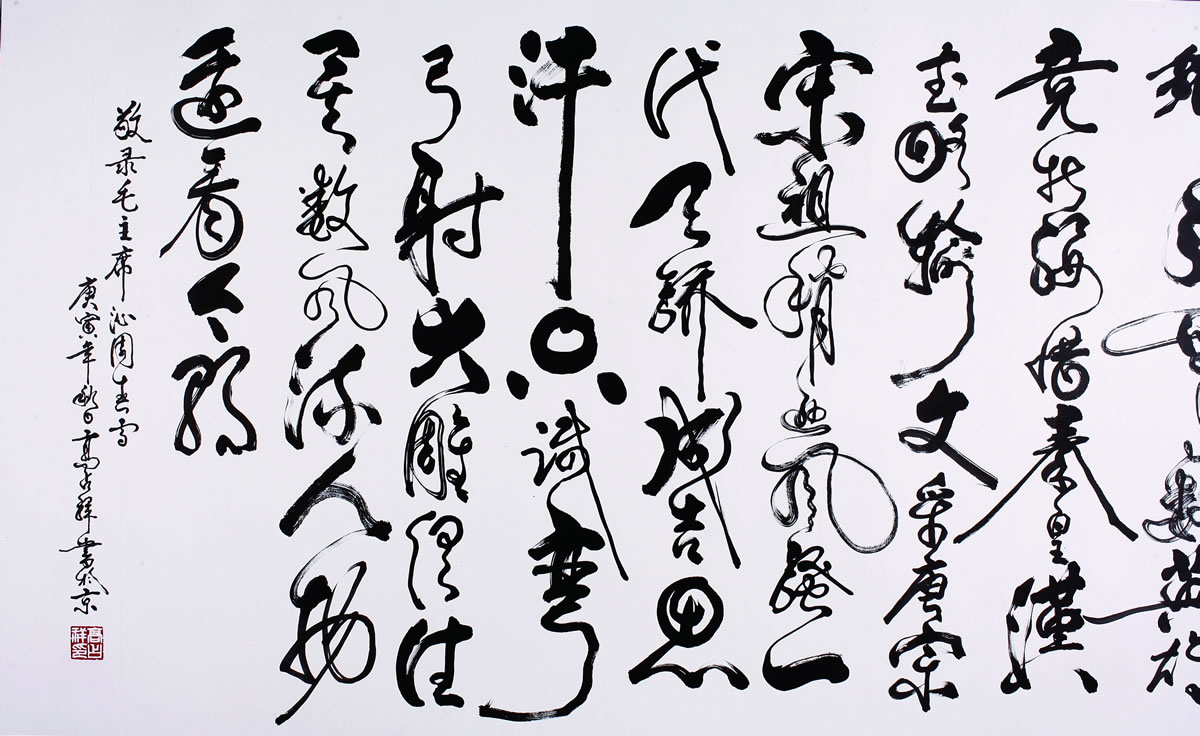 数英雄
竞折腰惜秦皇漢
武略输文采唐宗
宋祖稍逊风骚一
代天骄成吉思
汗只识弯
弓射大雕俱往
矣数风流人物
还看今朝
敬录毛主席沁园春雪
庚寅年秋日高占祥书于京
高占祥印